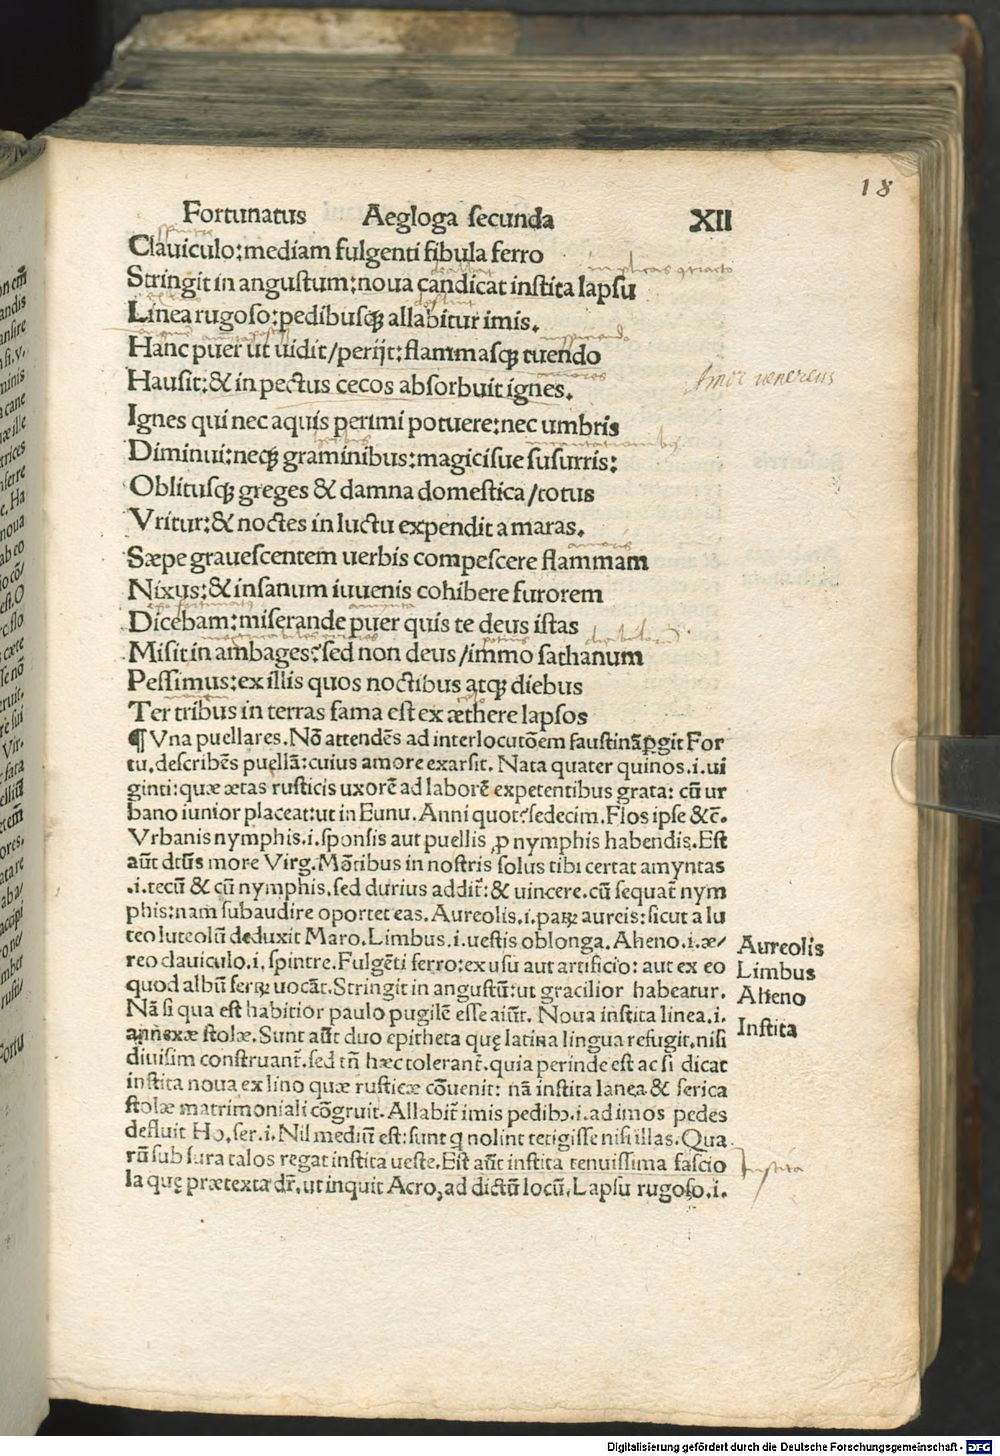 18
Fortunatus Aegloga secunda XII
Clauiculo:mediam fulgenti fibula ferro
Stringit in angustum:noua candicat instita lapsu
Linea rugoso:pedibusqȝ allabitur imis.
Hanc puer ut uidit/perijt:flammasqȝ tuendo
Hausit:& in pectus cecos absorbuit ignes.
Amor venereus
Ignes qui nec aquis perimi potuere:nec umbris
Diminui:neqȝ graminibus:magicisue susurris:
Oblitusqȝ greges & damna domestica/totus
Vritur:& noctes in luctu expendit amaras.
amoris
Sæpe grauescentem uerbis compescere flammam
Nixus:& insanum iuuenis cohibere furorem
ego fortunatus amynta
Dicebam:miserande puer quis te deus istas
Misit in ambages?sed non deus/immo sathanum
Pessimus:ex illis quos noctibus atqȝ diebus
Ter tribus in terras fama est ex æthere lapsos
¶ Vna puellares. Nō attendēs ad interlocutōem faustinā ꝑgit For
tu.describēs puellā:cuius amore exarsit. Nata quater quinos.i.ui
ginti:quæ ætas rusticis uxorē ad laborē expetentibus grata: cū ur
bano iunior placeat:ut in Eunu. Anni quot?sedecim. Flos ipse &c̄.
Vrbanis nymphis.i.sponsis aut puellis ꝓ nymphis habendis. Est
aūt dtūs more Virg. Mōtibus in nostris solus tibi certat amyntas
.i.tecū & cū nymphis. sed durius addit̄:& uincere.cū sequat̄ nym
phis:nam subaudire oportet eas. Aureolis.i.paꝝ aureis:sicut a lu
teo luteolū deduxit Maro. Limbus.i.uestis oblonga. Aheno.i.æ/
reo clauiculo.i.spintre. Fulgēti ferro:ex usu aut artificio: aut ex eo
quod albū ferꝝ uocāt. Stringit in angustū:ut gracilior habeatur.
Nā si qua est habitior paulo pugilē esse aiūt. Noua instita linea.i.
annexæ stolæ. Sunt aūt duo epitheta quę latina lingua refugit.nisi
diuisim construant̄.sed tn̄ hæc tolerant̄.quia perinde est ac si dicat
instita noua ex lino quæ rusticæ cōuenit: nā instita lanea & serica
stolæ matrimoniali cōgruit. Allabit̄ imis pedibꝰ.i.ad imos pedes
defluit Ho.ser.i. Nil mediū est:sunt q nolint tetigisse nisi illas. Qua
rū sub sura talos regat instita ueste. Est aūt instita tenuissima fascio
la quę prætexta dr̄.ut inquit Acro,ad dictū locū. Lapsu rugoso.i.
Aureolis
Limbus
Aheno
Instita
Instita
Digitalisierung gefördert durch die Deutsche Forschungsgemeinschaft - DFG